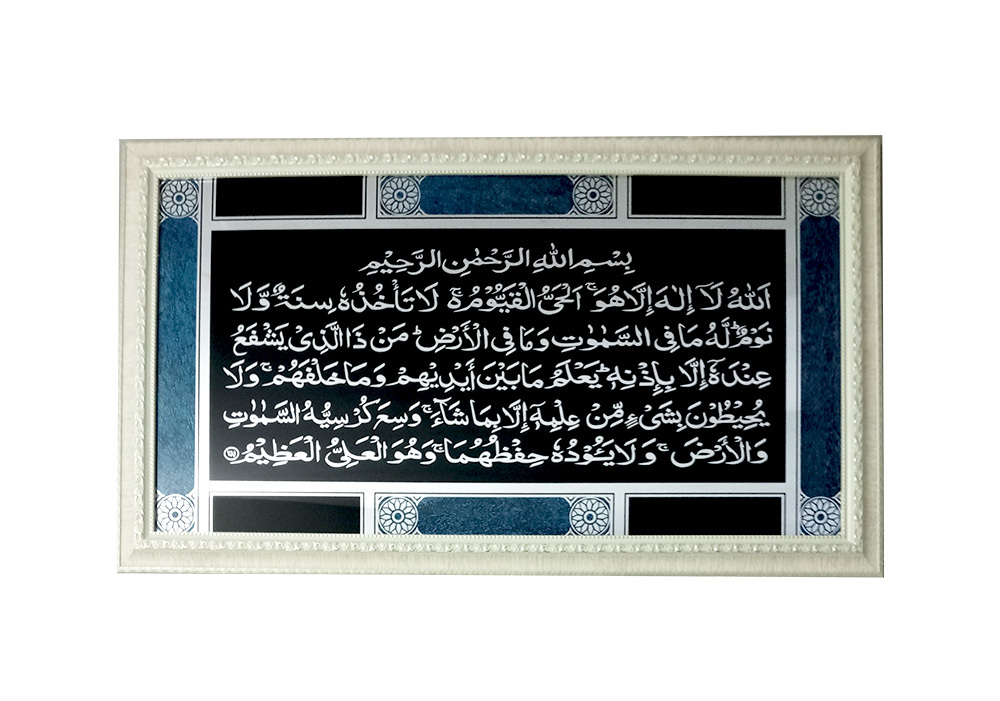 بِسْمِ اللهِ الرَّحْمٰنِ الرَّحِيْمِ
اَللهُ لَآ اِلٰهَ اِلَّا هُوَ ۚ اَلْحَىُّ الْقَيُّوْمُ ۚ لَا تَأْخُذُهٗ سِنَةٌ وَّلَا
نَوْمٌ ؕ لَهٗ مَا فِى السَّمٰوٰتِ وَمَا فِى الْاَرْضِ ؕ مَنْ ذَا الَّذِىْ يَشْفَعُ
عِنْدَهٗٓ اِلَّا بِاِذْنِهٖ ؕ يَعْلَمُ مَا بَيْنَ اَيْدِيْهِمْ وَمَا خَلْفَهُمْ ۚ وَلَا
يُحِيْطُوْنَ بِشَىْءٍ مِّنْ عِلْمِهٖٓ اِلَّا بِمَا شَآءَ ۚ وَسِعَ كُرْسِيُّهُ السَّمٰوٰتِ
وَالْاَرْضَ ۚ وَلَا يَـُٔوْدُهٗ حِفْظُهُمَا ۚ وَهُوَ الْعَلِىُّ الْعَظِيْمُ ﴿۲۵۵﴾